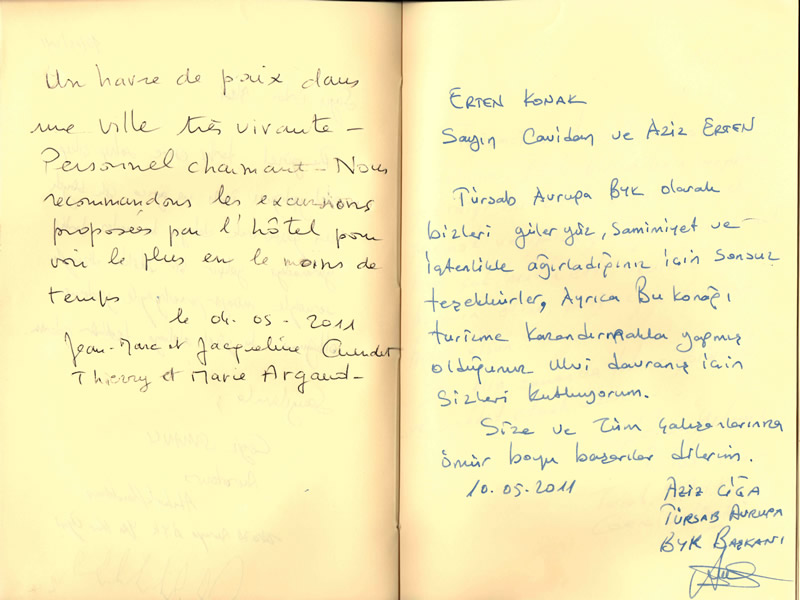 Un havre de paix dans
une ville très vivante –
Personnel charmant – Nous
recommandons les excursions
proposées par l'hôtel pour
voir le plus en le moins de
temps.
le 04.05.2011
Jean-Marc et Jacqueline Cuendet
Thierry et Marie Argaud –
ERTEN KONAK
Sayın Cavidan ve Aziz ERTEN
Türsab Avrupa BYK olarak
bizleri güler yüz, samimiyet ve
içtenlikle ağırladığınız için sonsuz
teşekkürler, Ayrıca Bu konağı
turizme kazandırmakla yapmış
olduğunuz ulvi davranış için
sizleri kutluyorum.
Size ve Tüm çalışanlarınıza
ömür boyu başarılar dilerim.
10.05.2011
AZİZ ÇİĞA
TÜRSAB AVRUPA
BYK BAŞKANI